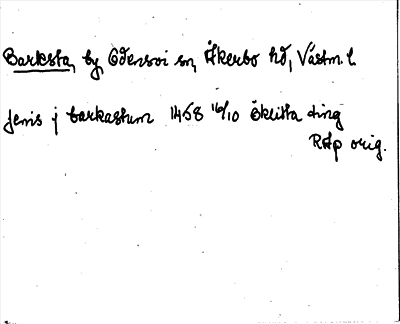 Barksta, by, Odensvi sn, Åkerbo hd, Västm. l.
Jenis j barkastum 1458 16/10 Öklista ting
RAp orig.